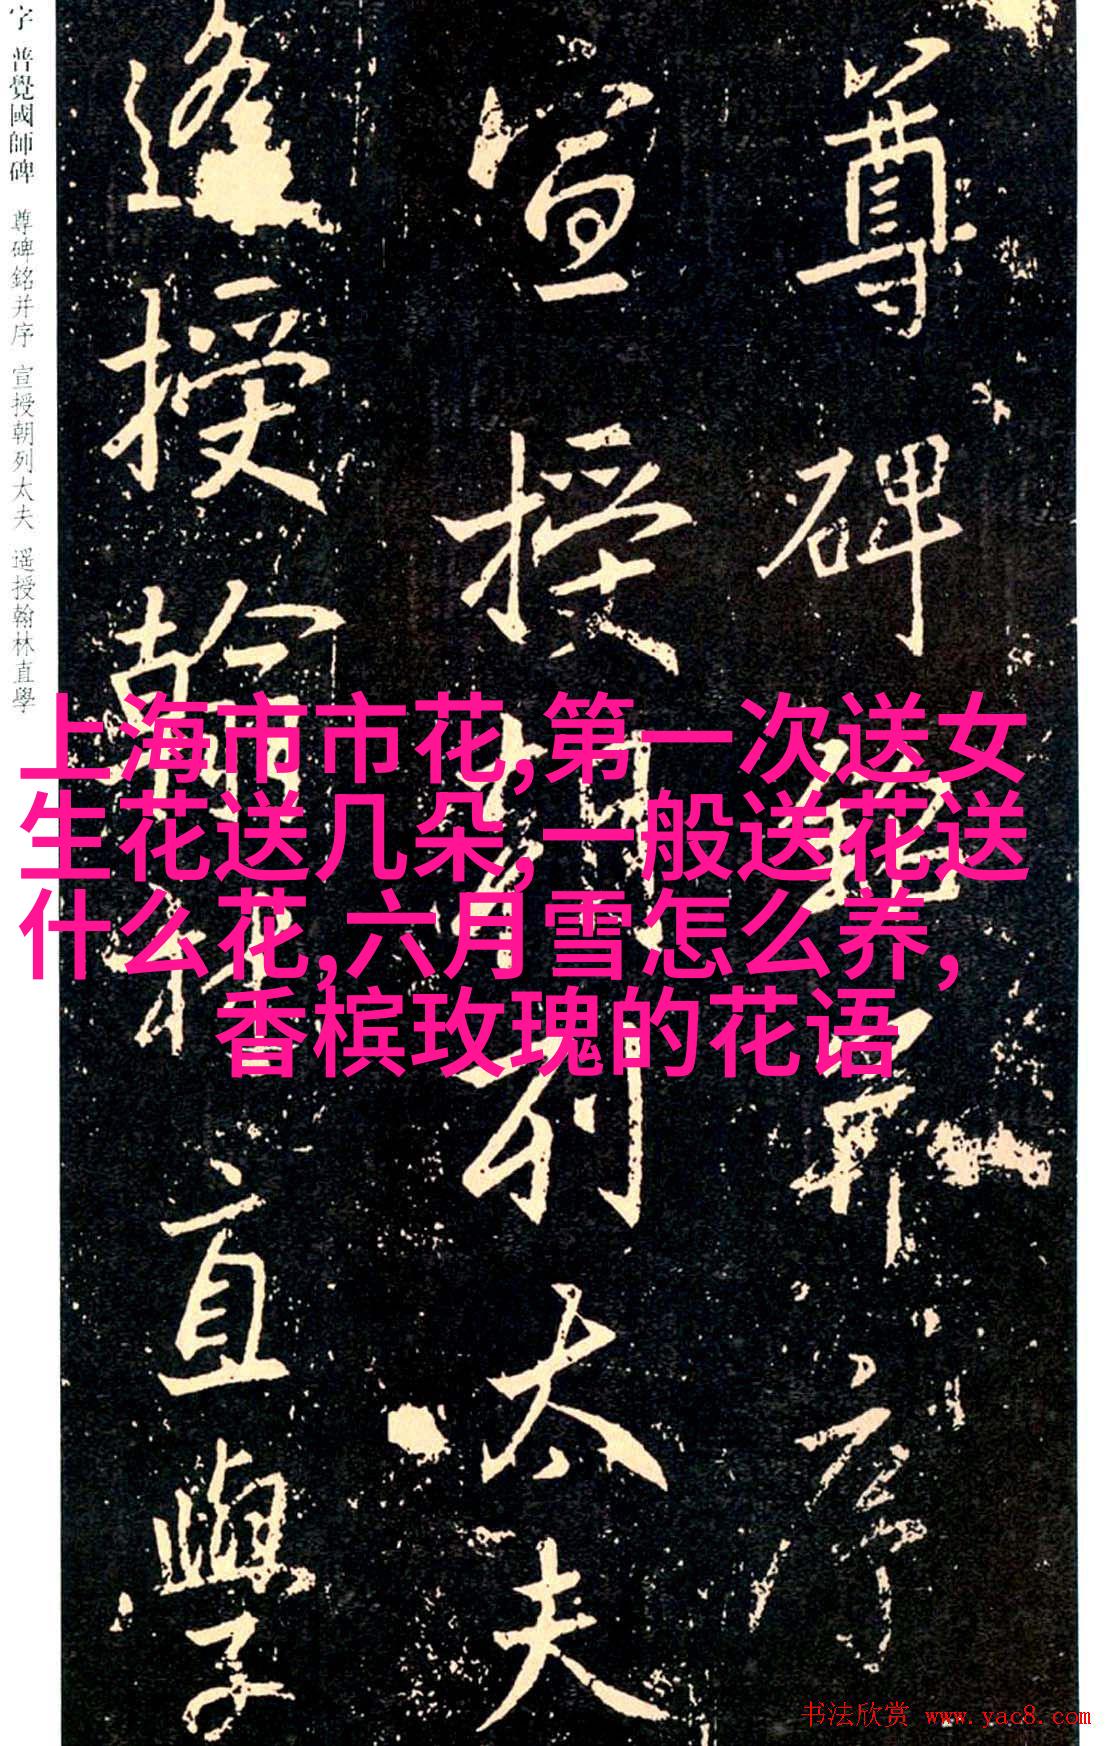 尊碑銘并序
宣授朝列太夫
遥授翰林直學
字 普覺國師碑 尊碑銘并序 宣授朝列太夫 遥授翰林直學
上海市市花,第一次送女
生花送几朵,一般送花送
什么花,六月雪怎么养,
香槟玫瑰的花语
书法欣赏 www.yac8.com